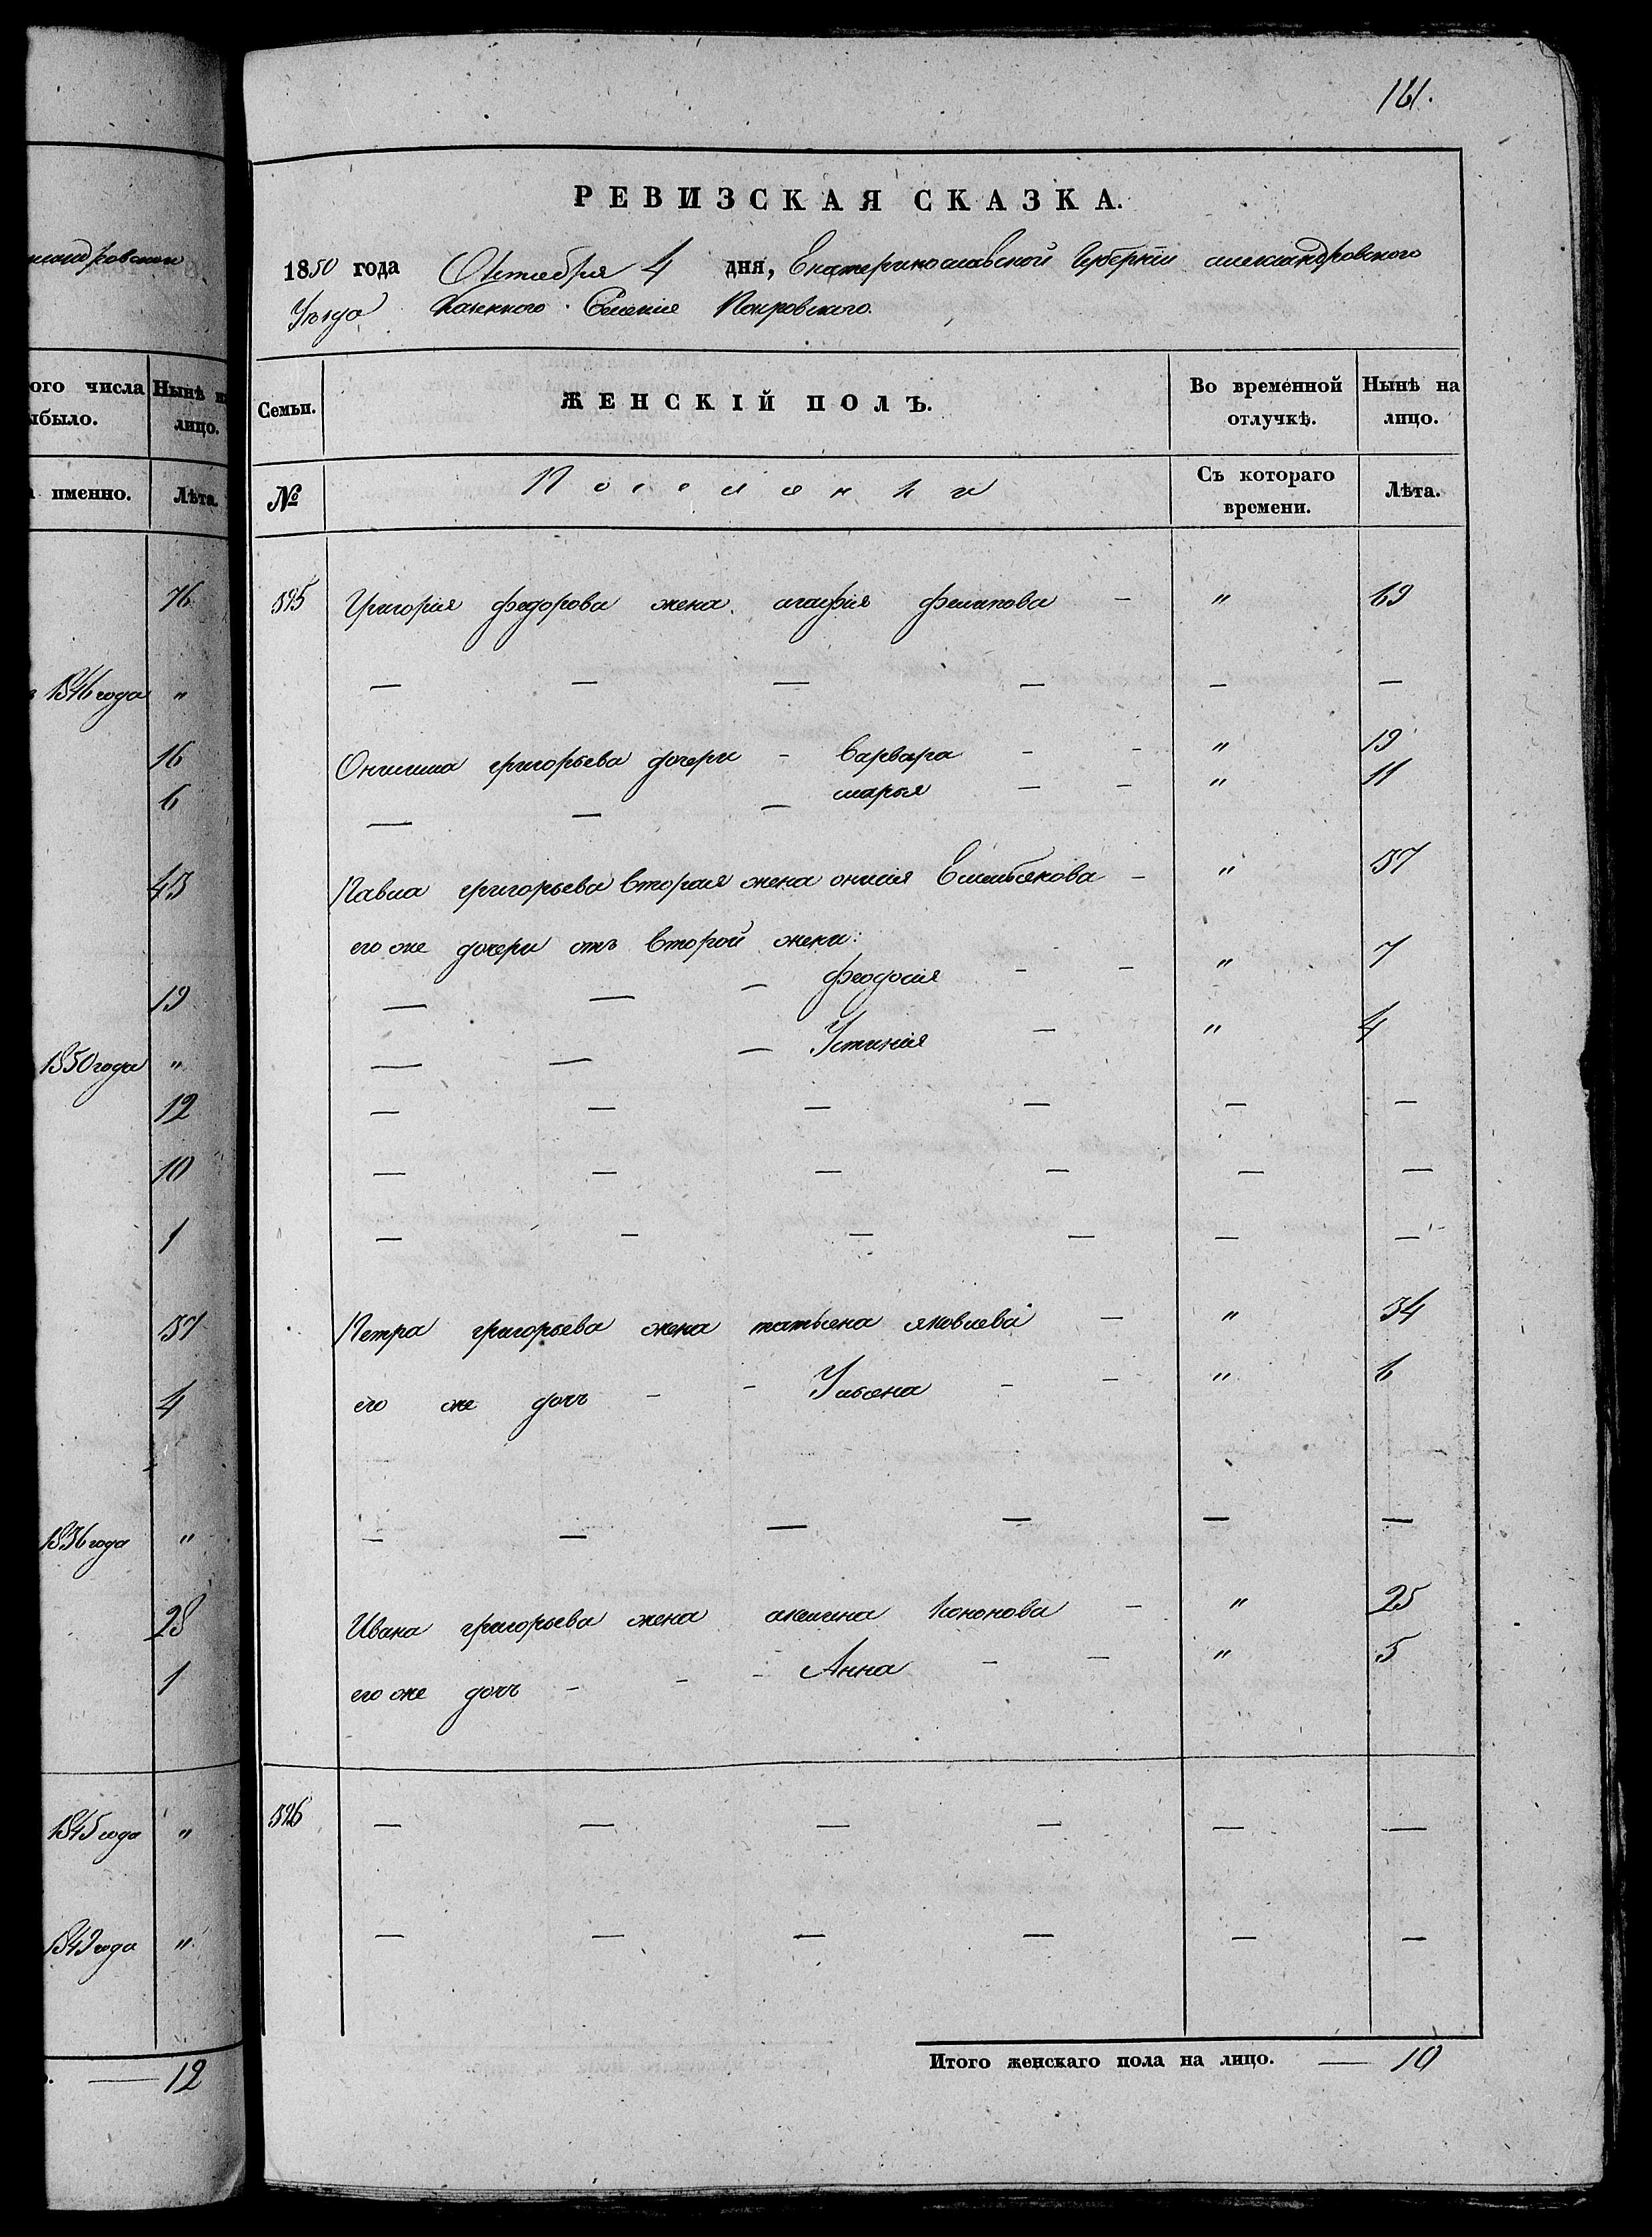 161.
мандровскаи
РЕВИЗСКАЯ СКАЗКА.
1850 года Октября 4 дня, Екатеринославской Губернии александровского
Уезда Казенного Селения Покровского.
ого числа
ыбыло.
Нынѣ н
лицо.
а именно.
Лѣта.
Семьи.
ЖЕНСКІЙ ПОЛЪ.
Во временной
отлучкѣ.
Нынѣ на
лицо.
№
Поселянки
Съ котораго
времени.
Лѣта.
76
1846 года "
16
6
43
19
1850 года "
12
10
1
37
4
1836 года "
28
1
1845 года "
1849 года "
12
525 Григория федорова жена агафия филипова — " 69
— — — — — —
Онисима григорьева дочери - Варвара - - " 19
— — — марья - - " 11
Павла григорьева вторая жена онисия - " 37
его же дочери отъ второй жены:
— — — феодосия - - " 7
— — — Устиния - " 4
— — — — — —
— — — — — —
— — — — — —
Петра григорьева жена татьяна яковлева — " 34
его же дочь - - Ульяна - - " 6
— — — — — —
Ивана григорьева жена акилина кононова - " 25
его же дочь - - - Анна - - " 5
526 — — — — — —
— — — — — —
Итого женскаго пола на лицо. — 10